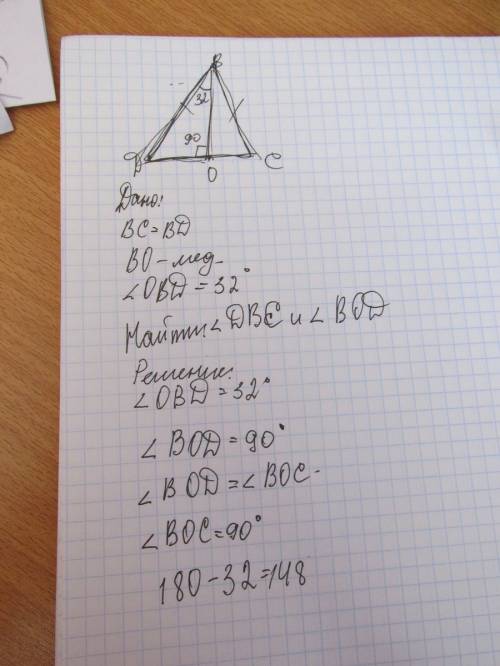 B
32
90
D
O
C
Дано:
BC=BD
BO-мед.
∠OBD=32°
Найти: ∠DBC и ∠BOD
Решение:
∠OBD=32°
∠BOD=90°
∠BOD=∠BOC.
∠BOC=90°
180-32=148